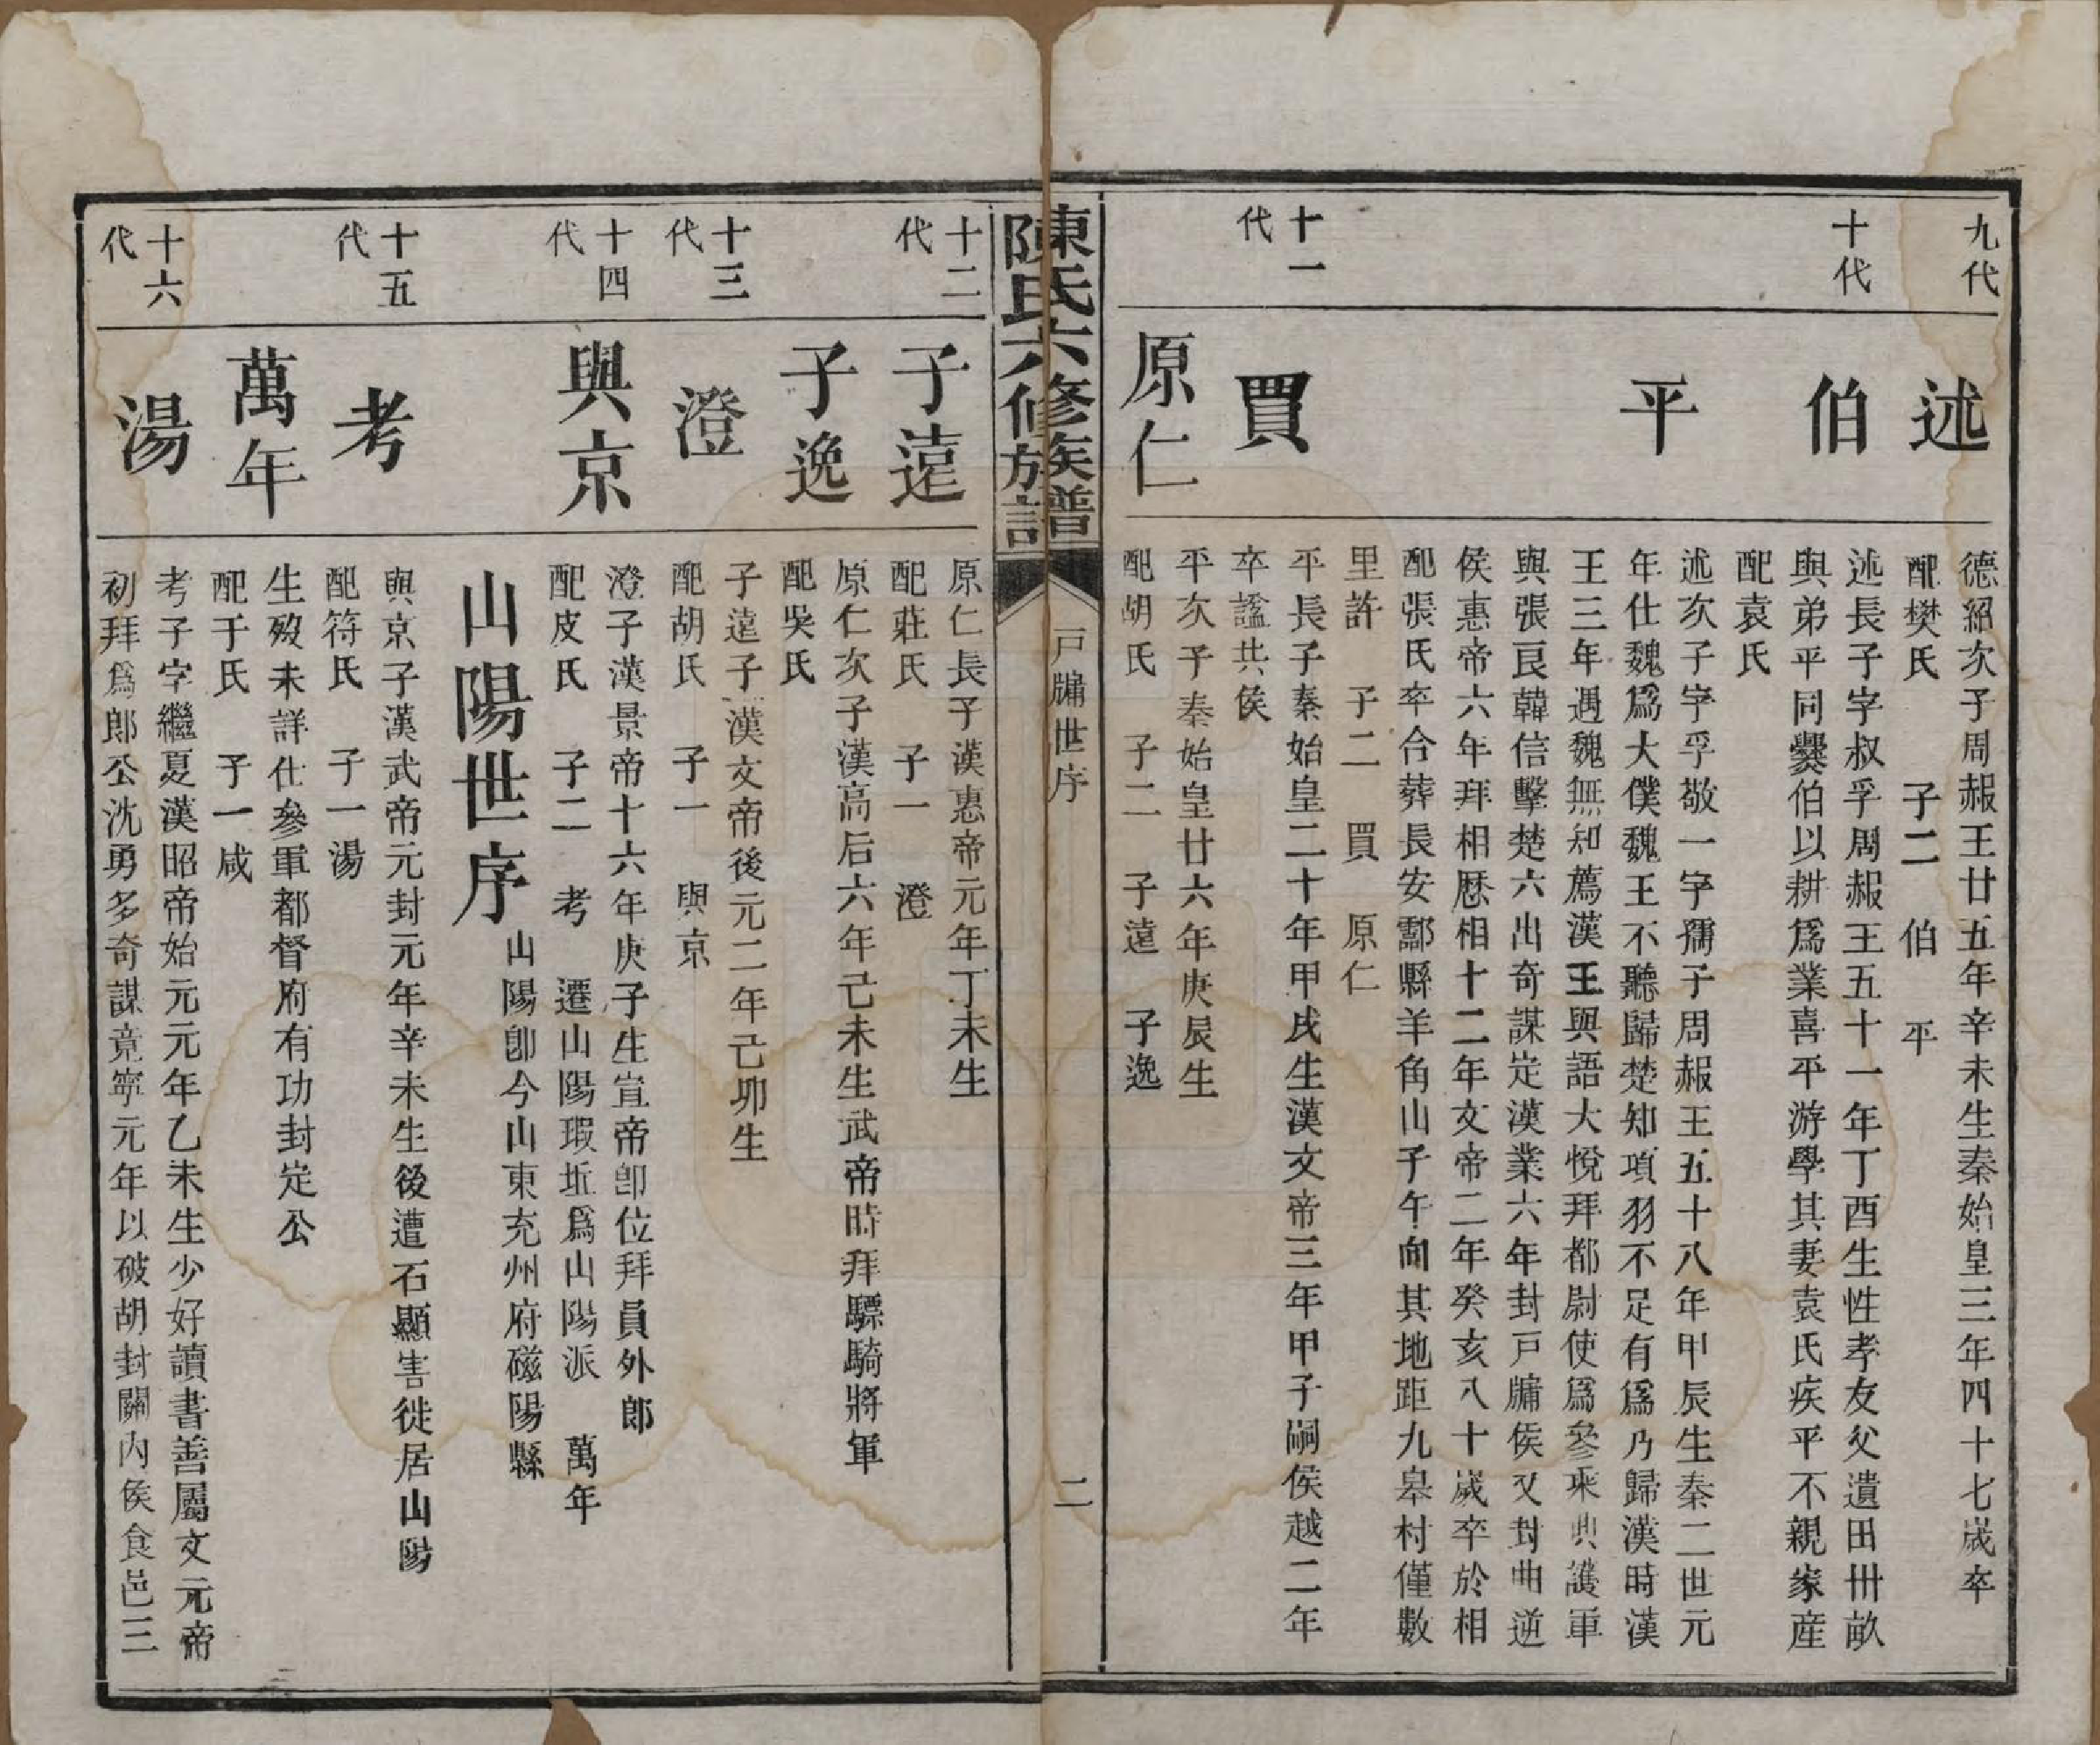 九代
述
德紹次子周赧王廿五年辛未生秦始皇三年四十七歲卒
配樊氏 子二 伯 平
十代
伯
述長子字叔孚周赧王五十一年丁酉生性孝友父遺田卅畝
與弟平同爨伯以耕爲業喜平游學其妻袁氏疾平不親家産
配袁氏
平
述次子字孚敬一字孺子周赧王五十八年甲辰生秦二世元
年仕魏爲大僕魏王不聽歸楚知項羽不足有爲乃歸漢時漢
王三年遇魏無知薦漢王與語大悅拜都尉使爲參乘典護軍
與張良韓信擊楚六出奇謀定漢業六年封戸牗侯又封曲逆
侯惠帝六年拜相歷相十二年文帝二年癸亥八十歲卒於相
配張氏卒合葬長安鄠縣羊角山子午向其地距九皋村僅數
里許 子二 買 原仁
十一代
買
平長子秦始皇二十年甲戌生漢文帝三年甲子嗣侯越二年
卒謚共侯
原仁
平次子秦始皇廿六年庚辰生
配胡氏 子二 子遠 子逸
陳氏六修族譜
戸牗世序
二
十二代
子遠
原仁長子漢惠帝元年丁未生
配莊氏 子一 澄
子逸
原仁次子漢高后六年己未生武帝時拜驃騎將軍
配吳氏
十三代
澄
子遠子漢文帝後元二年己卯生
配胡氏 子一 與京
十四代
與京
澄子漢景帝十六年庚子生宣帝卽位拜員外郎
配皮氏 子二 考 遷山陽瑕坵爲山陽派 萬年
山陽世序
山陽卽今山東充州府磁陽縣
十五代
考
與京子漢武帝元封元年辛未生後遭石顯害徙居山陽
配符氏 子一湯
萬年
生歿未詳仕參軍都督府有功封定公
配于氏 子一咸
十六代
湯
考子字繼夏漢昭帝始元元年乙未生少好讀書善屬文元帝
初拜爲郎公沈勇多奇謀竟寧元年以破胡封關內侯食邑三